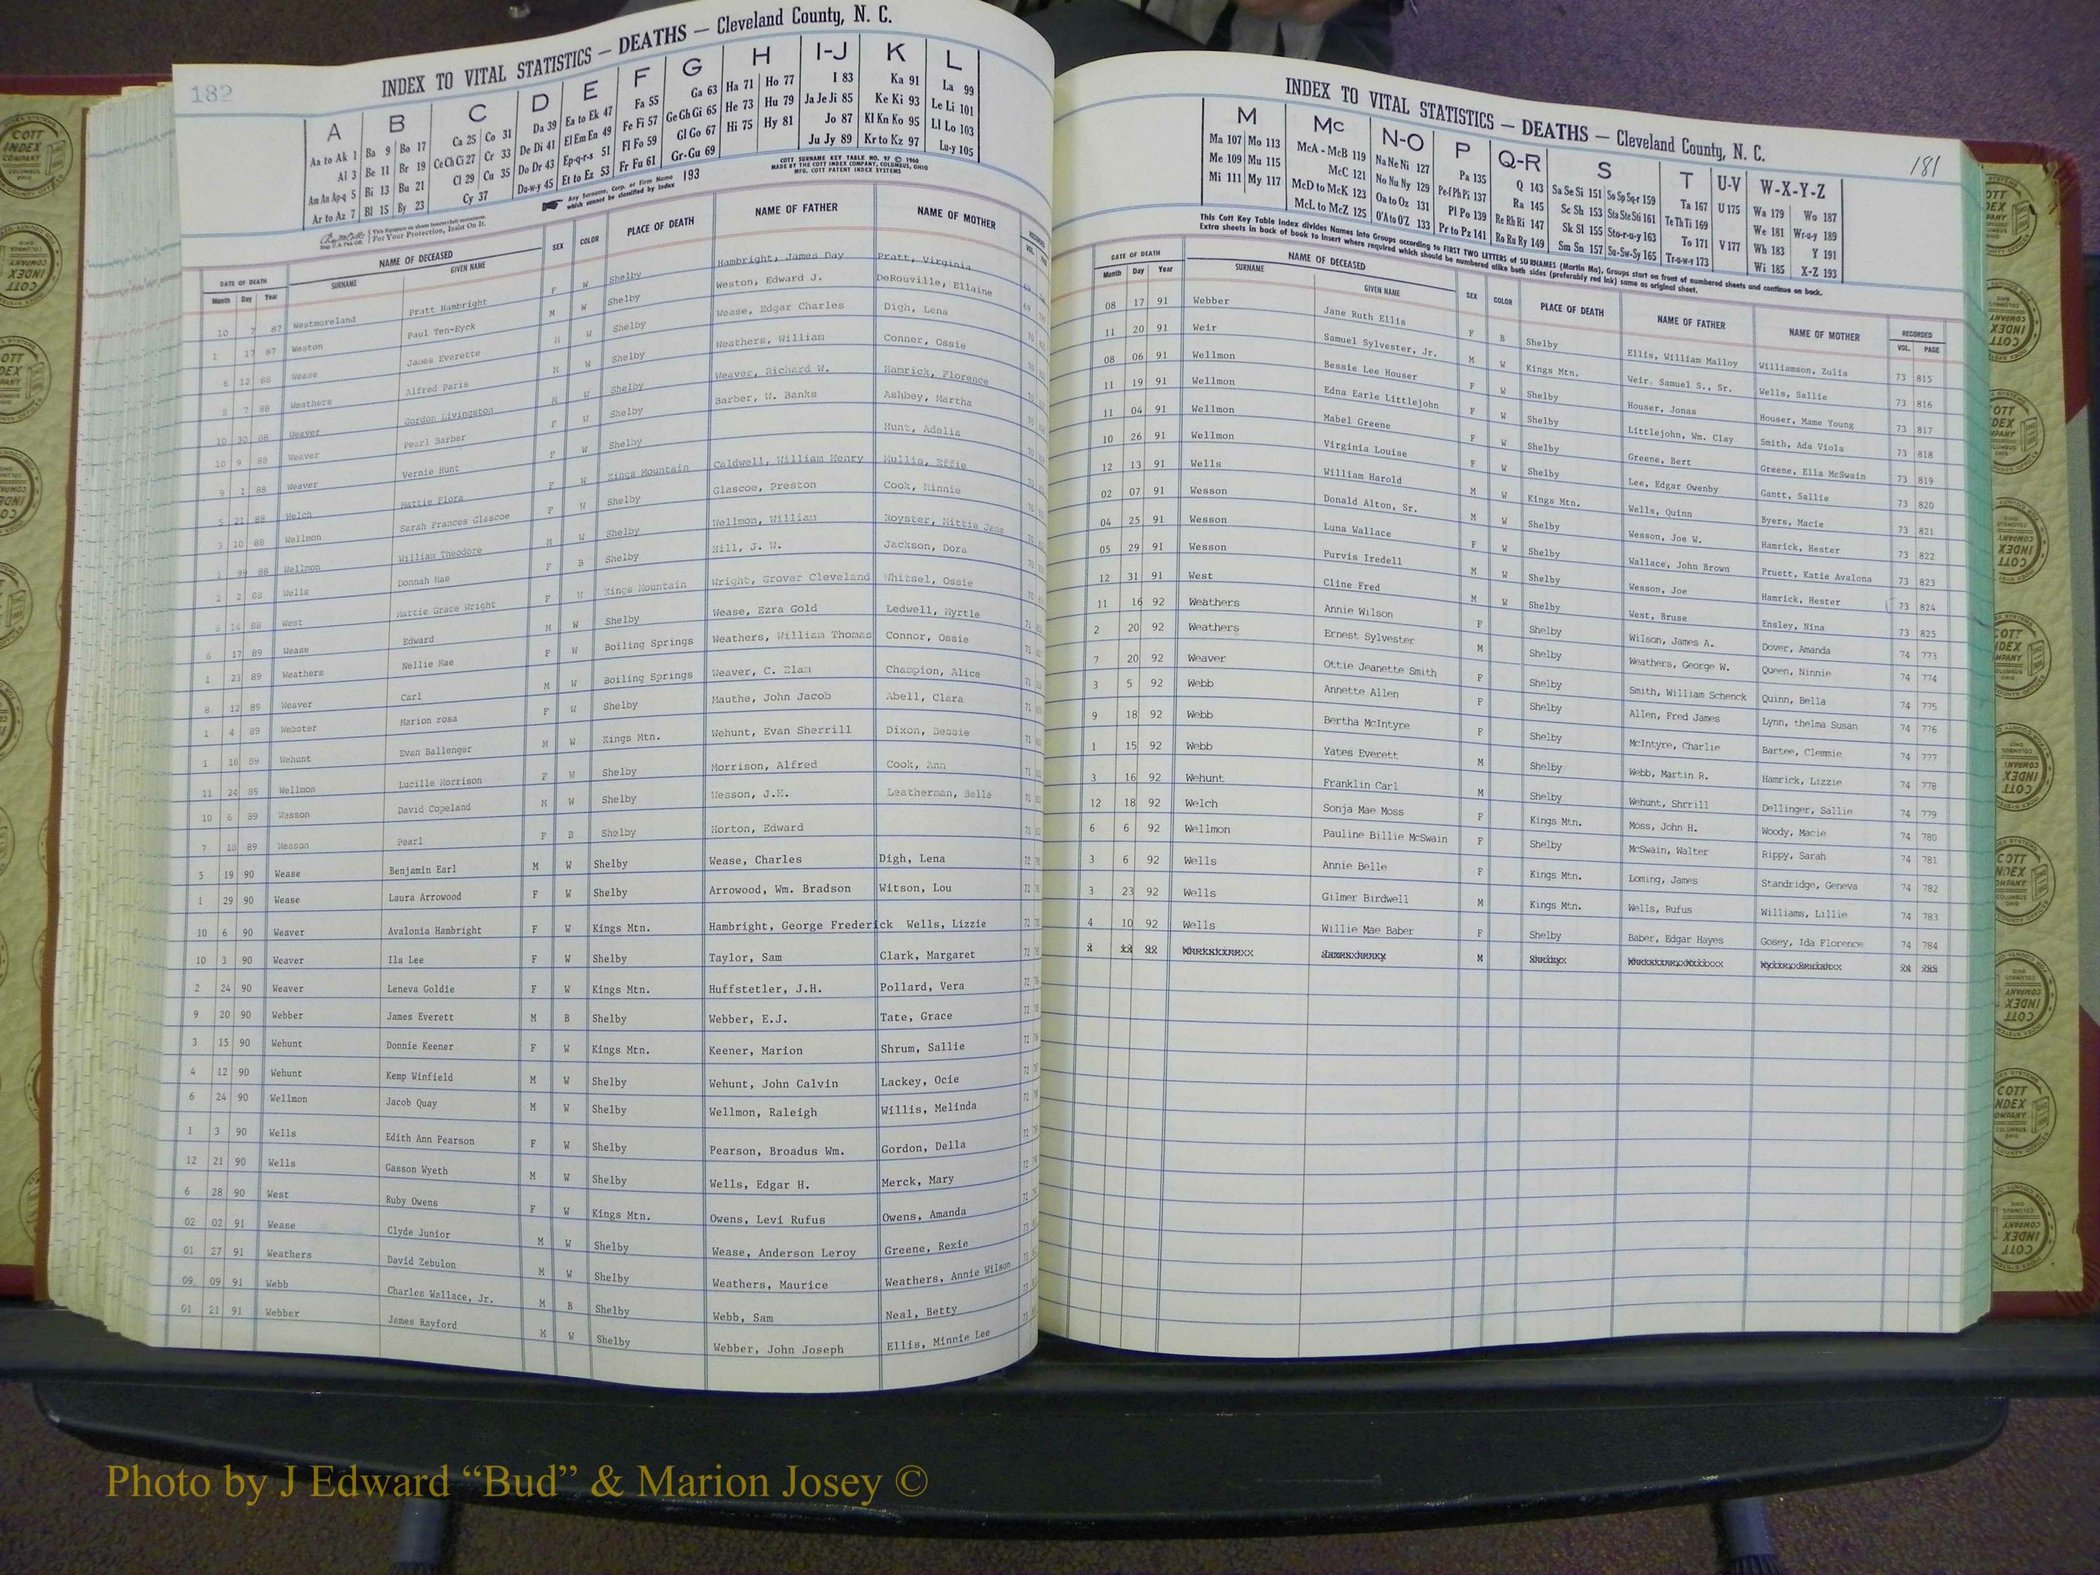 182
INDEX TO VITAL STATISTICS — DEATHS — Cleveland County, N. C.
A B C D E F G H I-J K L
Aa to Ak 1 Ba 9 Bo 17 Ca 25 Co 31 Da 39 Ea to Ek 47 Fa 55 Ga 63 Ha 71 Ho 77 I 83 Ka 91 La 99
Al 3 Be 11 Br 19 Ce Ch Ci 27 Cr 33 De Di 41 El Em En 49 Fe Fi 57 Ge Gh Gi 65 He 73 Hu 79 Ja Je Ji 85 Ke Ki 93 Le Li 101
Am An Ap-q 5 Bi 13 Bu 21 Cl 29 Cu 35 Do Dr 43 Ep-q-r-s 51 Fl Fo 59 Gl Go 67 Hi 75 Hy 81 Jo 87 Kl Kn Ko 95 Ll Lo 103
Ar to Az 7 Bl 15 By 23 Cy 37 Du-w-y 45 Et to Ez 53 Fr Fu 61 Gr-Gu 69 Ju Jy 89 Kr to Kz 97 Lu-y 105
Any Surname, Corp. or Firm Name which cannot be classified by Index 193
COTT SURNAME KEY TABLE NO. 97 © 1960
MADE BY THE COTT INDEX COMPANY, COLUMBUS, OHIO
MFG. COTT PATENT INDEX SYSTEMS
For Your Protection, Insist On It.
DATE OF DEATH NAME OF DECEASED SEX COLOR PLACE OF DEATH NAME OF FATHER NAME OF MOTHER RECORDED
Month Day Year SURNAME GIVEN NAME VOL.
10 7 87 Westmoreland Pratt Hambright F W Shelby Hambright, James Day Pratt, Virginia
1 17 87 Weston Paul Ten-Eyck M W Shelby Weston, Edward J. DeRouville, Ellaine
6 12 88 Wease James Everette M W Shelby Wease, Edgar Charles Digh, Lena
8 7 88 Weathers Alfred Paris M W Shelby Weathers, William Conner, Ossie
10 30 88 Weaver Gordon Livingston M W Shelby Weaver, Richard W. Hamrick, Florence
10 9 88 Weaver Pearl Barber F W Shelby Barber, W. Banks Ashbey, Martha
9 1 88 Weaver Vernie Hunt F W Shelby Hunt, Adelia
5 21 88 Welch Mattie Flora F W Kings Mountain Caldwell, William Henry Mullis, Effie
3 10 88 Wellmon Sarah Frances Glascoe F W Shelby Glascoe, Preston Cook, Minnie
1 99 88 Wellmon William Theodore M W Shelby Wellmon, William Royster, Mittie Jane
2 2 88 Wells Donnah Mae F B Shelby Hill, J. W. Jackson, Dora
6 14 88 West Mattie Grace Wright F W Kings Mountain Wright, Grover Cleveland Whitsel, Ossie
6 17 89 Wease Edward M W Shelby Wease, Ezra Gold Ledwell, Myrtle
1 23 89 Weathers Nellie Mae F W Boiling Springs Weathers, William Thomas Connor, Ossie
8 12 89 Weaver Carl M W Boiling Springs Weaver, C. Elam Champion, Alice
1 4 89 Webster Marion rosa F W Shelby Mauthe, John Jacob Abell, Clara
1 18 89 Wehunt Evan Ballenger M W Kings Mtn. Wehunt, Evan Sherrill Dixon, Bessie
11 24 89 Wellmon Lucille Morrison F W Shelby Morrison, Alfred Cook, Ann
10 6 89 Wesson David Copeland M W Shelby Wesson, J.H. Leatherman, Belle
7 18 89 Wesson Pearl F B Shelby Horton, Edward
5 19 90 Wease Benjamin Earl M W Shelby Wease, Charles Digh, Lena 72
1 29 90 Wease Laura Arrowood F W Shelby Arrowood, Wm. Bradson Witson, Lou 72
10 6 90 Weaver Avalonia Hambright F W Kings Mtn. Hambright, George Frederick Wells, Lizzie 72
10 3 90 Weaver Ila Lee F W Shelby Taylor, Sam Clark, Margaret 72
2 24 90 Weaver Leneva Goldie F W Kings Mtn. Huffstetler, J.H. Pollard, Vera 72
9 20 90 Webber James Everett M B Shelby Webber, E.J. Tate, Grace 72
3 15 90 Wehunt Donnie Keener F W Kings Mtn. Keener, Marion Shrum, Sallie 72
4 12 90 Wehunt Kemp Winfield M W Shelby Wehunt, John Calvin Lackey, Ocie 72
6 24 90 Wellmon Jacob Quay M W Shelby Wellmon, Raleigh Willis, Melinda 72
1 3 90 Wells Edith Ann Pearson F W Shelby Pearson, Broadus Wm. Gordon, Della 72
12 21 90 Wells Gasson Wyeth M W Shelby Wells, Edgar H. Merck, Mary 72
6 28 90 West Ruby Owens F W Kings Mtn. Owens, Levi Rufus Owens, Amanda 72
02 02 91 Wease Clyde Junior M W Shelby Wease, Anderson Leroy Greene, Rexie 73
01 27 91 Weathers David Zebulon M W Shelby Weathers, Maurice Weathers, Annie Wilson 73
09 09 91 Webb Charles Wallace, Jr. M B Shelby Webb, Sam Neal, Betty 73
01 21 91 Webber James Rayford M W Shelby Webber, John Joseph Ellis, Minnie Lee 73
181
INDEX TO VITAL STATISTICS — DEATHS — Cleveland County, N. C.
M Mc N-O P Q-R S T U-V W-X-Y-Z
Ma 107 Mo 113 McA - McB 119 Na Ne Ni 127 Pa 135 Q 143 Sa Se Si 151 So Sp Sq-r 159 Ta 167 U 175 Wa 179 Wo 187
Me 109 Mu 115 McC 121 No Nu Ny 129 Pe-f Ph Pi 137 Ra 145 Sc Sh 153 Sta Ste Sti 161 Te Th Ti 169 We 181 Wr-u-y 189
Mi 111 My 117 McD to McK 123 Oa to Oz 131 Pl Po 139 Re Rh Ri 147 Sk Sl 155 Sto-r-u-y 163 To 171 V 177 Wh 183 Y 191
McL to McZ 125 O'A to O'Z 133 Pr to Pz 141 Ro Ru Ry 149 Sm Sn 157 Su-Sw-Sy 165 Tr-u-w-y 173 Wi 185 X-Z 193
This Cott Key Table Index divides Names into Groups according to FIRST TWO LETTERS of SURNAMES (Martin Ma). Groups start on front of numbered sheets and continue on back.
Extra sheets in back of book to insert where required which should be numbered alike both sides (preferably red ink) same as original sheet.
DATE OF DEATH NAME OF DECEASED SEX COLOR PLACE OF DEATH NAME OF FATHER NAME OF MOTHER RECORDED
Month Day Year SURNAME GIVEN NAME VOL. PAGE
08 17 91 Webber Jane Ruth Ellis F B Shelby Ellis, William Malloy Williamson, Zulia 73 815
11 20 91 Weir Samuel Sylvester, Jr. M W Kings Mtn. Weir, Samuel S., Sr. Wells, Sallie 73 816
08 06 91 Wellmon Bessie Lee Houser F W Shelby Houser, Jonas Houser, Mame Young 73 817
11 19 91 Wellmon Edna Earle Littlejohn F W Shelby Littlejohn, Wm. Clay Smith, Ada Viola 73 818
11 04 91 Wellmon Mabel Greene F W Shelby Greene, Bert Greene, Ella McSwain 73 819
10 26 91 Wellmon Virginia Louise F W Shelby Lee, Edgar Owenby Gantt, Sallie 73 820
12 13 91 Wells William Harold M W Kings Mtn. Wells, Quinn Byers, Macie 73 821
02 07 91 Wesson Donald Alton, Sr. M W Shelby Wesson, Joe W. Hamrick, Hester 73 822
04 25 91 Wesson Luna Wallace F W Shelby Wallace, John Brown Pruett, Katie Avalona 73 823
05 29 91 Wesson Purvis Iredell M W Shelby Wesson, Joe Hamrick, Hester 73 824
12 31 91 West Cline Fred M W Shelby West, Bruse Ensley, Nina 73 825
11 16 92 Weathers Annie Wilson F Shelby Wilson, James A. Dover, Amanda 74 773
2 20 92 Weathers Ernest Sylvester M Shelby Weathers, George W. Queen, Ninnie 74 774
7 20 92 Weaver Ottie Jeanette Smith F Shelby Smith, William Schenck Quinn, Bella 74 775
3 5 92 Webb Annette Allen F Shelby Allen, Fred James Lynn, thelma Susan 74 776
9 18 92 Webb Bertha McIntyre F Shelby McIntyre, Charlie Bartee, Clemmie 74 777
1 15 92 Webb Yates Everett M Shelby Webb, Martin R. Hamrick, Lizzie 74 778
3 16 92 Wehunt Franklin Carl M Shelby Wehunt, Shrrill Dellinger, Sallie 74 779
12 18 92 Welch Sonja Mae Moss F Kings Mtn. Moss, John H. Woody, Macie 74 780
6 6 92 Wellmon Pauline Billie McSwain F Shelby McSwain, Walter Rippy, Sarah 74 781
3 6 92 Wells Annie Belle F Kings Mtn. Loming, James Standridge, Geneva 74 782
3 23 92 Wells Gilmer Birdwell M Kings Mtn. Wells, Rufus Williams, Lillie 74 783
4 10 92 Wells Willie Mae Baber F Shelby Baber, Edgar Hayes Gosey, Ida Florence 74 784
M
Photo by J Edward “Bud” & Marion Josey ©